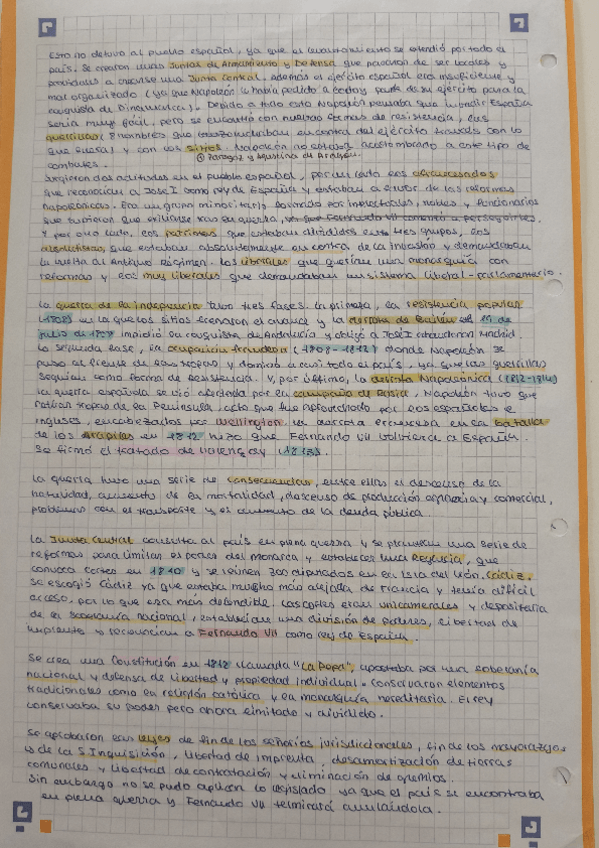 Esto no detuvo al pueblo español, ya que el levantamiento se extendió por todo el
país. Se crearon unas Juntas de Armamento y Defensa que pasaron de ser locales y
provinciales a crearse una Junta Central. Además el ejército español era insuficiente y
mal organizado (ya que Napoleón le había pedido a Godoy parte de su ejército para la
conquista de Dinamarca). Debido a todo esto Napoleón pensaba que invadir España
sería muy fácil, pero se encontró con nuevas formas de resistencia, las
guerrillas (hombres que luchaban en contra del ejército francés con lo
que fuese) y con los sitios. Napoleón no estaba acostumbrado a este tipo de
combates. Zaragoza y Agustina de Aragón.
Surgieron dos actitudes en el pueblo español, por un lado los afrancesados
que reconocían a José I como rey de España y estaban a favor de las reformas
napoleónicas. Era un grupo minoritario formado por intelectuales, nobles y funcionarios
que tuvieron que exiliarse tras su guerra, ya que Fernando VII comenzó a perseguirles.
Y por otro lado, los patriotas que estaban divididos entre tres grupos, los
absolutistas, que estaban absolutamente en contra de la invasión y demandaban
la vuelta al Antiguo Régimen. Los liberales que querían una monarquía con
reformas y los muy liberales que demandaban un sistema liberal-parlamentario.
La guerra de la independencia tuvo tres fases. La primera, la resistencia popular
(1808) en la que los sitios frenaron el avance y la derrota de Bailén el 19 de
julio de 1808 impidió la conquista de Andalucía y obligó a José I abandonar Madrid.
La segunda fase, la ocupación francesa (1808-1812) donde Napoleón se
puso al frente de sus tropas y dominó a casi todo el país, ya que las guerrillas
seguían como forma de resistencia. Y, por último, la derrota Napoleónica (1812-1814)
la guerra española se vió afectada por la campaña de Rusia, Napoleón tuvo que
retirar tropas de la Península, acto que fue aprovechado por los españoles e
ingleses, encabezados por Wellington. La derrota francesa en la batalla
de los Arapiles en 1812 hizo que Fernando VII volviera a España.
Se firmó el tratado de Valençay (1813).
La guerra tuvo una serie de consecuencias, entre ellas el descenso de la
natalidad, aumento de la mortalidad, descenso de producción agrícola y comercial,
problemas con el transporte y el aumento de la deuda pública.
La Junta Central consulta al país en plena guerra y se plantean una serie de
reformas para limitar el poder del monarca y establecer una Regencia, que
convoca Cortes en 1810 y se reúnen 300 diputados en la Isla del León, Cádiz.
Se escogió Cádiz ya que estaba mucho más alejada de Francia y tenía difícil
acceso, por lo que era más defendible. Las cortes eran unicamerales y depositaria
de la soberanía nacional, establecían una división de poderes, libertad de
imprenta y reconocían a Fernando VII como rey de España.
Se crea una Constitución en 1812 llamada "La Pepa", apostaba por una soberanía
nacional y defensa de libertad y propiedad individual. Conservaron elementos
tradicionales como la religión católica y la monarquía hereditaria. El rey
conservaba su poder pero ahora limitado y dividido.
Se aprobaron las leyes de fin de los señoríos jurisdiccionales, fin de los mayorazgos
y de la S. Inquisición, libertad de imprenta, desamortización de tierras
comunales y libertad de contratación y eliminación de gremios.
Sin embargo no se pudo aplicar lo legislado ya que el país se encontraba
en plena guerra y Fernando VII terminará anulándola.